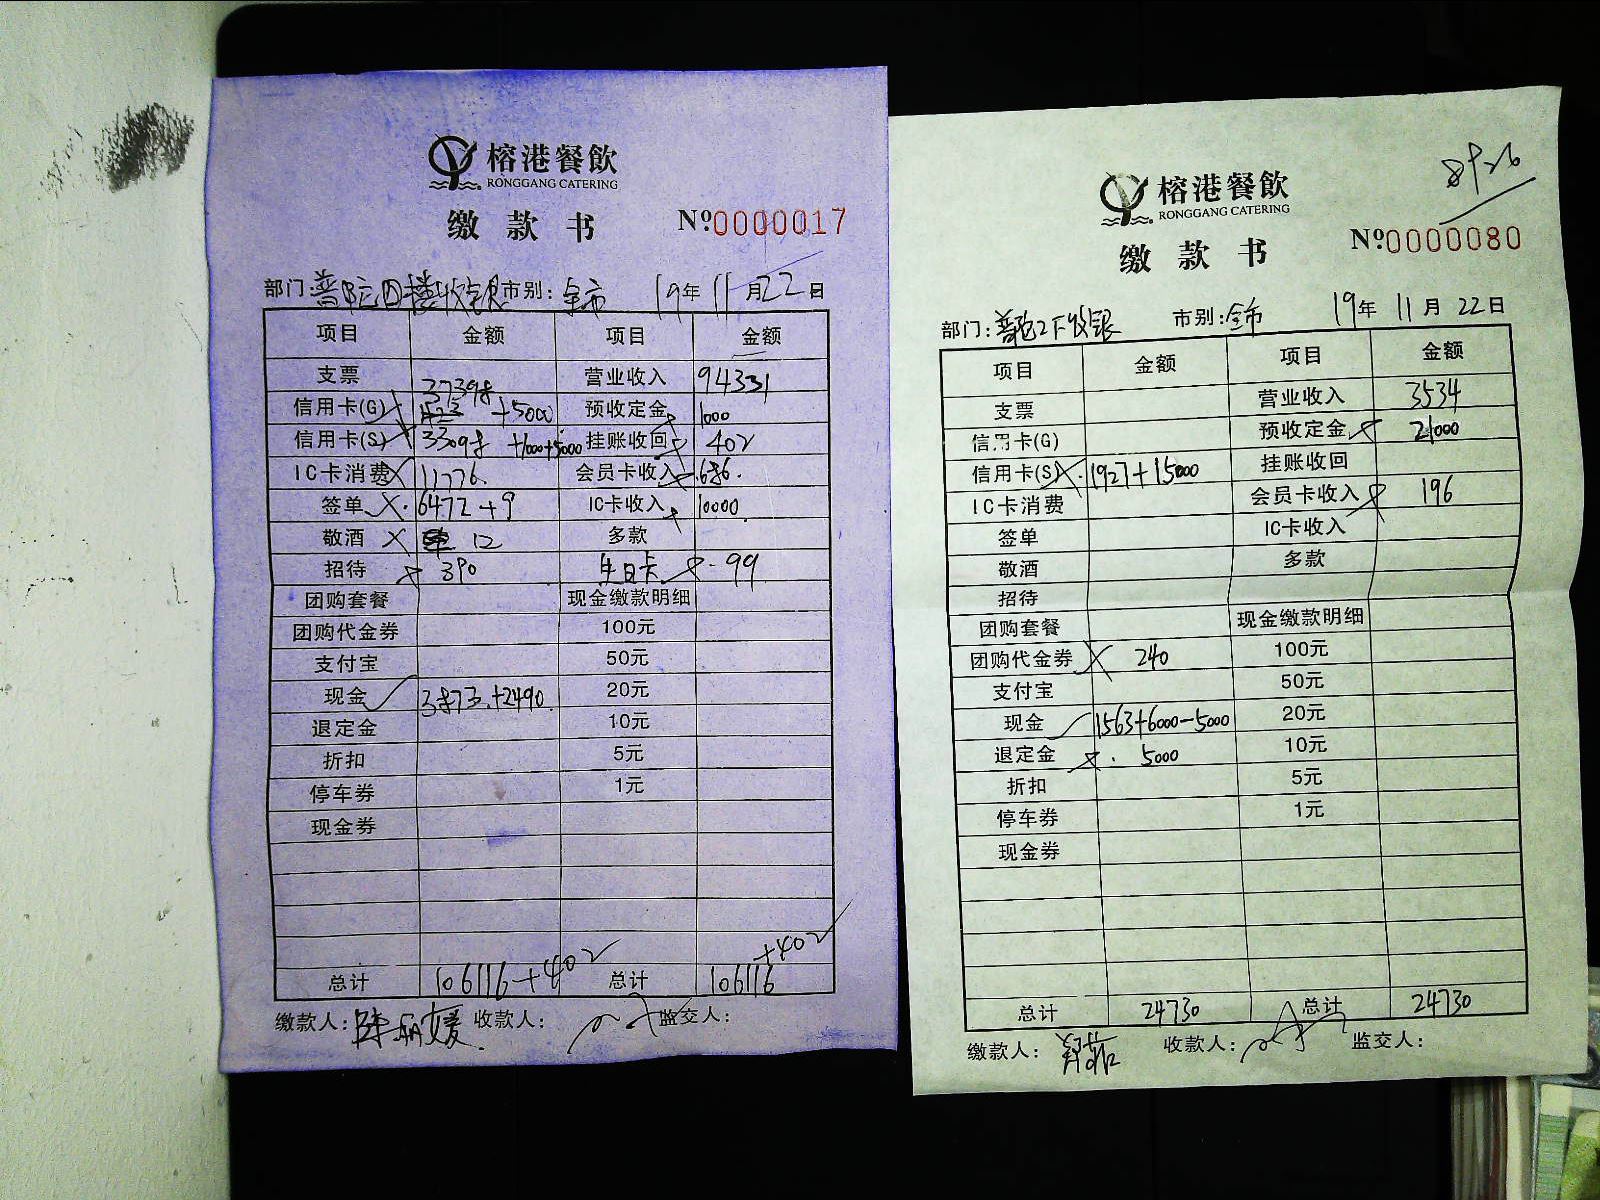 榕港餐飲
RONGGANG CATERING
缴款书 №0000017
部门:普陀四楼收银 市别:全市 19年11月22日
项目 金额 项目 金额
支票 营业收入 94331
信用卡(G) 37398 +5000 预收定金 1000
信用卡(S) 33098 +1000+5000 挂账收回 402
IC卡消费 11776. 会员卡收入 686.
签单 6472+9 IC卡收入 10000.
敬酒 12 多款
招待 390 生日卡 99
团购套餐 现金缴款明细
团购代金券 100元
支付宝 50元
现金 3873.+2490. 20元
退定金 10元
折扣 5元
停车券 1元
现金券
总计 106116+402 总计 106116+402
缴款人:陈丽媛 收款人: 监交人:
8926
榕港餐飲
RONGGANG CATERING
缴款书 №0000080
部门:普陀2下收银 市别:全市 19年11月22日
项目 金额 项目 金额
支票 营业收入 3534
信用卡(G) 预收定金 21000
信用卡(S) 1927+15000 挂账收回
IC卡消费 会员卡收入 196
签单 IC卡收入
敬酒 多款
招待
团购套餐 现金缴款明细
团购代金券 240 100元
支付宝 50元
现金 1563+6000-5000 20元
退定金 5000 10元
折扣 5元
停车券 1元
现金券
总计 24730 总计 24730
缴款人: 收款人: 监交人: